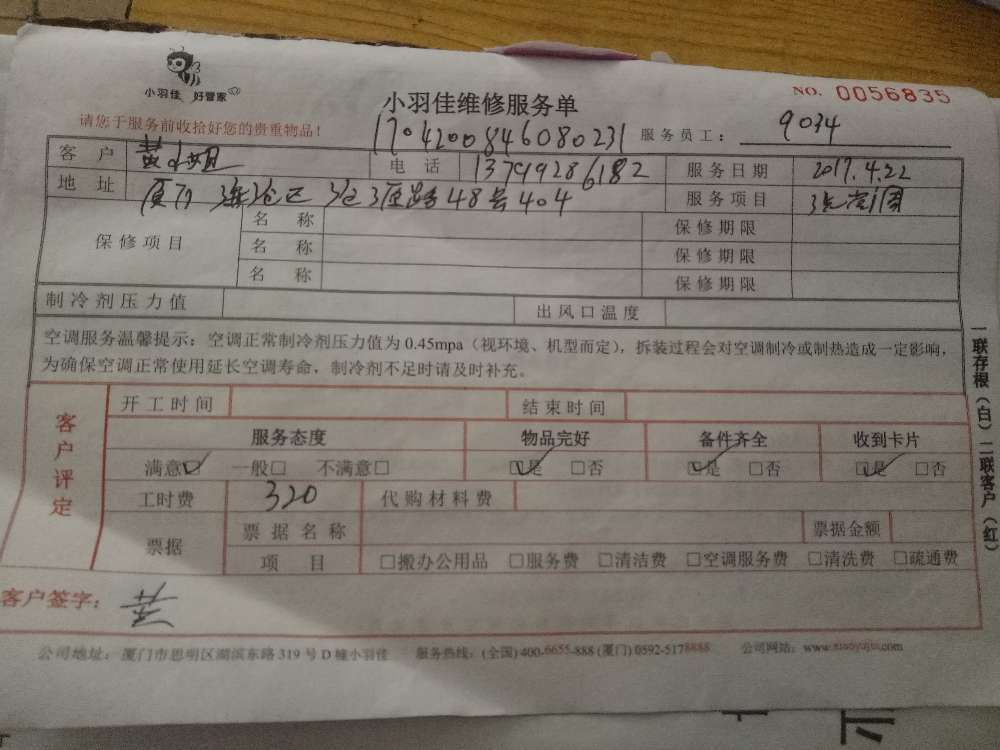 小羽佳 好管家
小羽佳维修服务单
NO. 0056835
请您于服务前收拾好您的贵重物品！
1704200846080231
服务员工： 9034
客户 黄小姐 电话 13799286182 服务日期 2017.4.22
地址 48号404 服务项目
保修项目 名称 保修期限
名称 保修期限
名称 保修期限
制冷剂压力值 出风口温度
空调服务温馨提示：空调正常制冷剂压力值为 0.45mpa（视环境、机型而定），拆装过程会对空调制冷或制热造成一定影响，
为确保空调正常使用延长空调寿命，制冷剂不足时请及时补充。
客户评定
开工时间 结束时间
服务态度 物品完好 备件齐全 收到卡片
满意☑ 一般□ 不满意□ ☑是 □否 ☑是 □否 ☑是 □否
工时费 320 代购材料费
票据 票据名称 票据金额
项目 □搬办公用品 □服务费 □清洁费 □空调服务费 □清洗费 □疏通费
客户签字： 黄
公司地址：厦门市思明区湖滨东路 319 号 D 幢小羽佳 服务热线：(全国) 400-6655-888 (厦门) 0592-5178888 公司网站：www.xiaoyujia.com
一联存根（白）二联客户（红）